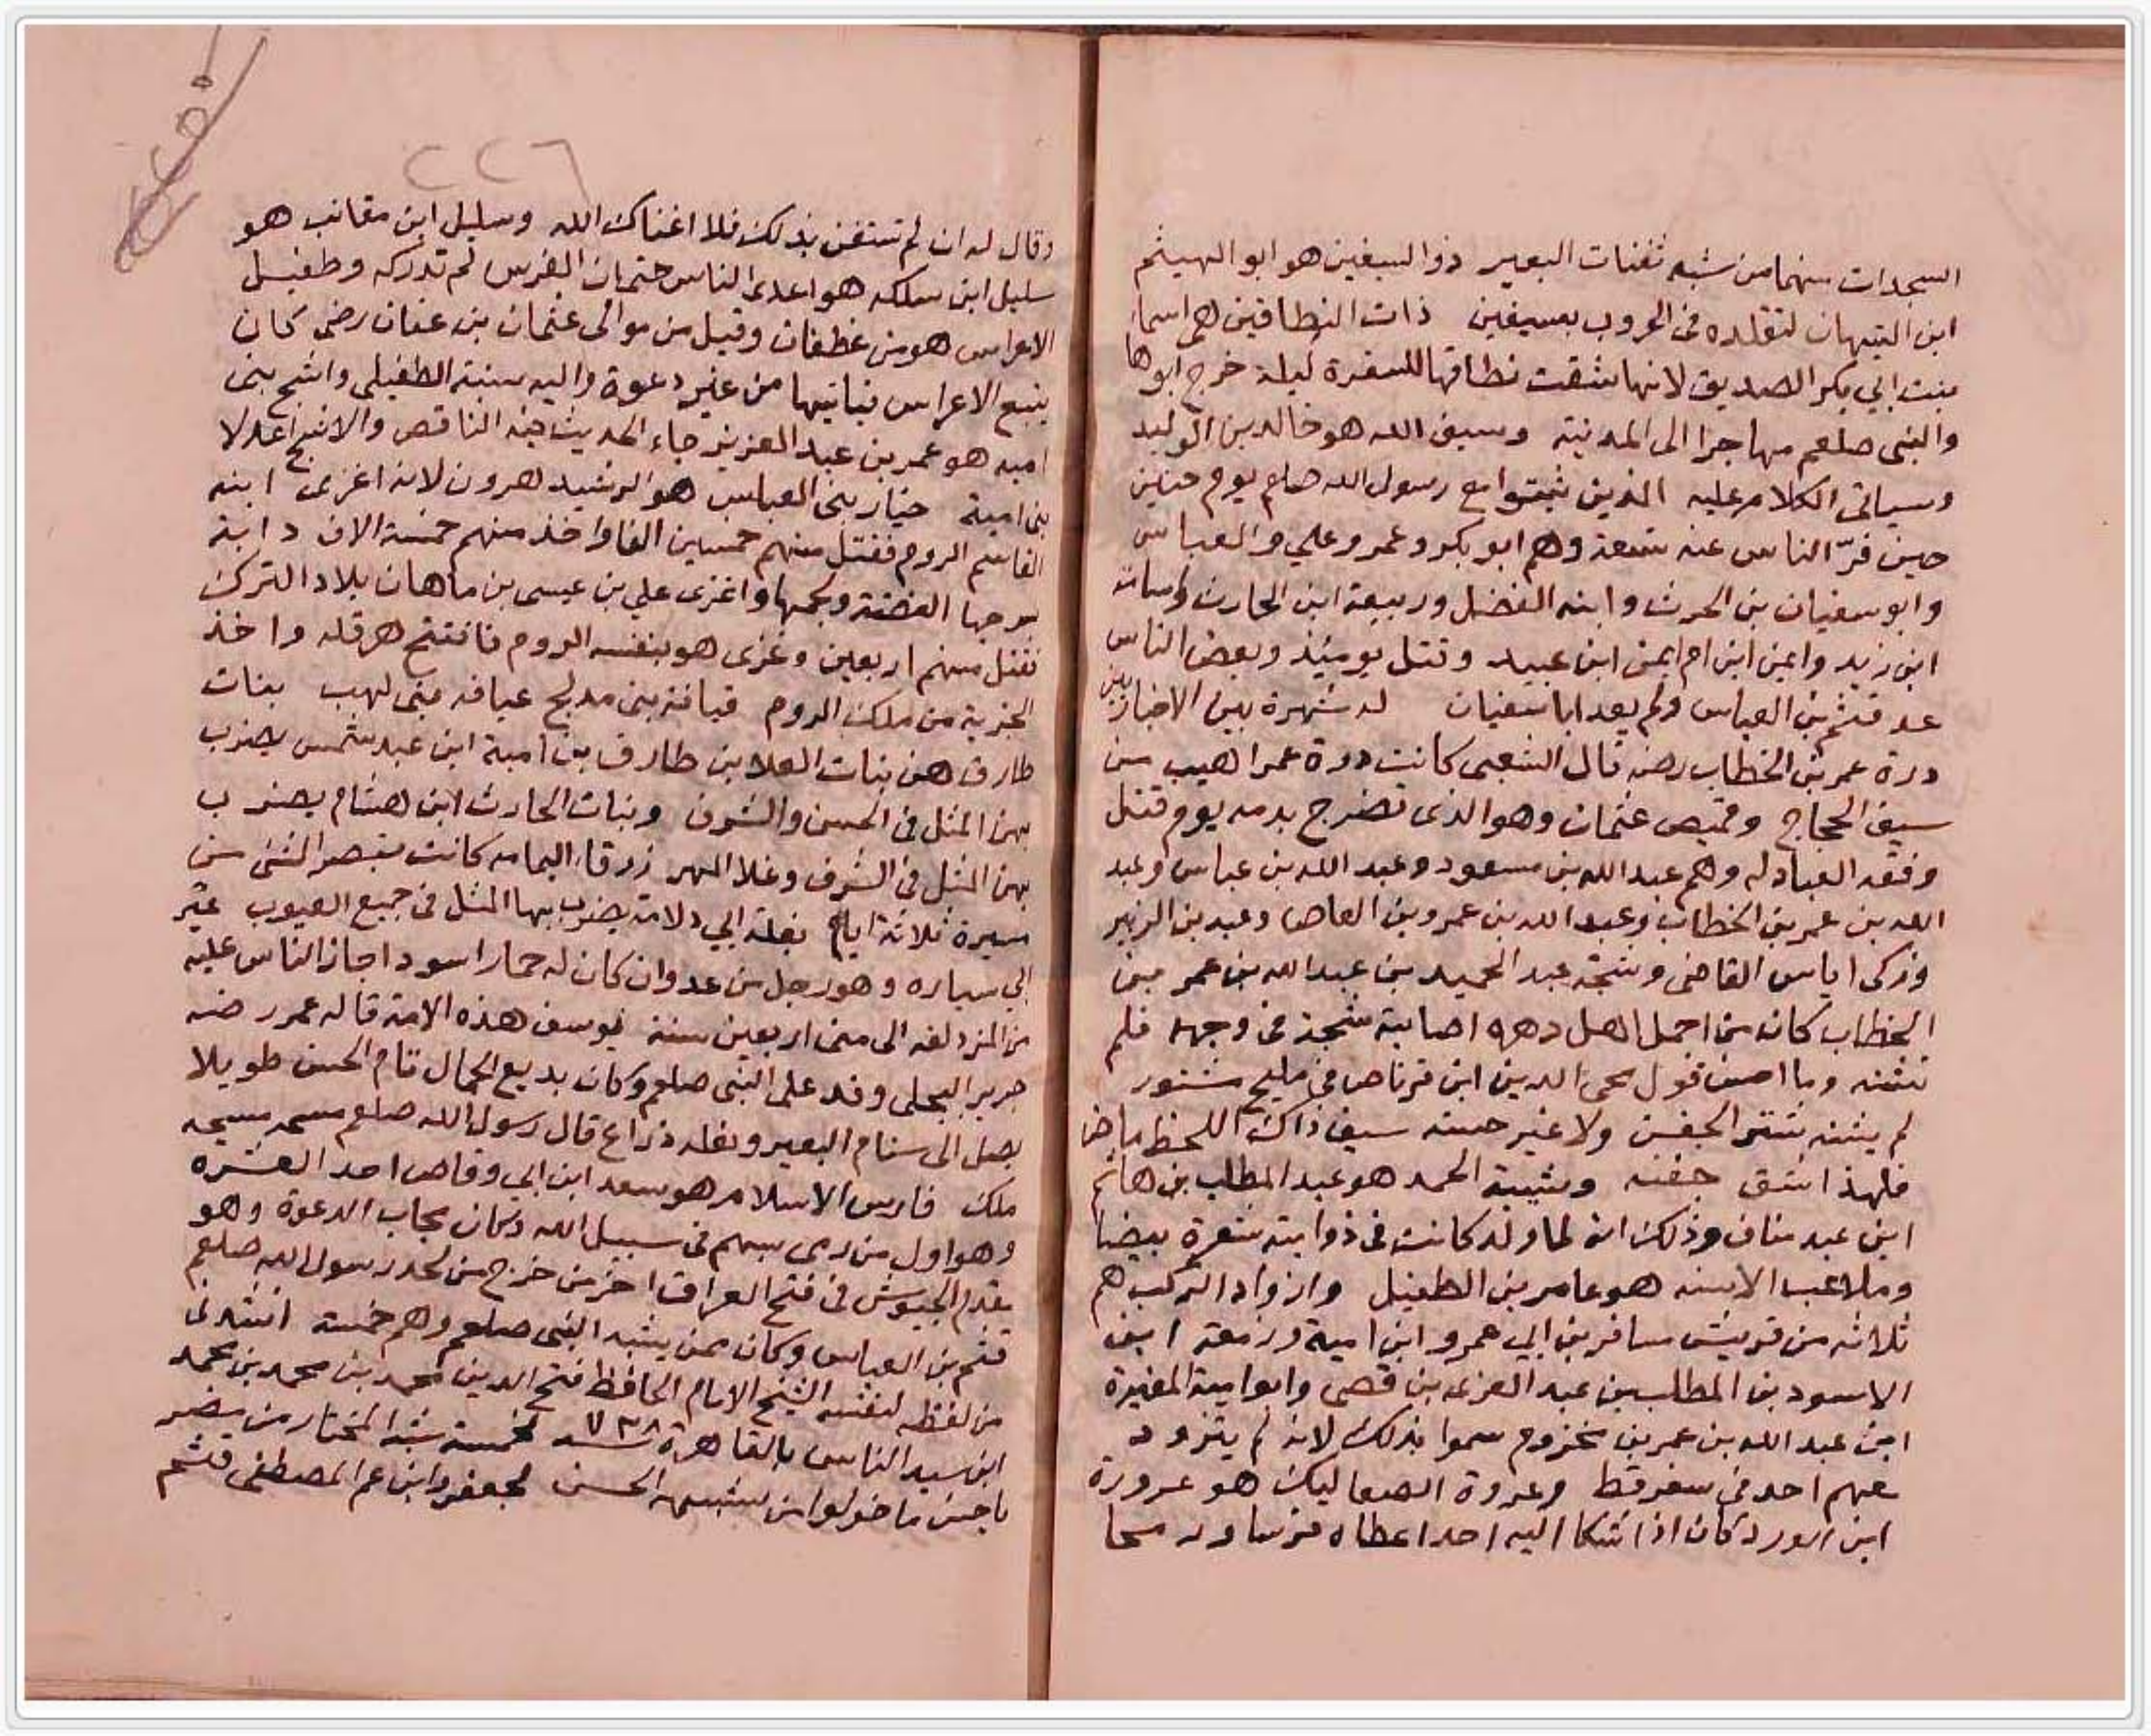 السجدات منهما من شبه ثفنات البعير ذو السيفين هو ابو الهيثم
ابن التيهان لتقلده فى الحروب بسيفين ذات النطاقين هى اسماء
بنت ابي بكر الصديق لانها شقت نطاقها للسفرة ليلة خرج ابوها
والنبى صلعم مهاجرا الى المدينة وسيف الله هو خالد بن الوليد
وسياتى الكلام عليه الذين ثبتوا مع رسول الله صلعم يوم حنين
حين فرّ الناس عنه تسعة وهم ابو بكر وعمر وعلي والعباس
وابو سفيان بن الحرث وابنه الفضل وربيعة ابن الحارث واسامة
ابن زيد وايمن ابن ام ايمن ابن عبيد وقتل يومئذ وبعض الناس
عد قثم بن العباس ولم يعد ابا سفيان له شهرة بين الاخبارين
درة عمر بن الخطاب رضه قال الشعبى كانت درة عمر اهيب من
سيف الحجاج وقميص عثمان وهو الذى تضرج بدمه يوم قتل
وفقه العبادله وهم عبد الله بن مسعود وعبد الله بن عباس وعبد
الله بن عمر بن الخطاب وعبد الله بن عمرو بن العاص وعبد بن الزبير
وزكى اياس القاضى وشجة عبد الحميد بن عبد الله بن عمر بن
الخطاب كان من اجمل اهل دهره اصابته شجة فى وجهه فلم
تشنه وما احسن قول محى الدين ابن قرناص فى مليح مشتور
لم يشنه شتر الجفن ولا غير حسنه سيف ذاك اللحظ ماض
فلهذا انشق جفنه وشيبة الحمد هو عبد المطلب بن هاشم
ابن عبد مناف وذلك انه لما ولد كانت فى ذوابته شعرة بيضا
وملاعب الاسنه هو عامر بن الطفيل وازواد الركب هم
ثلاثه من قريش مسافر بن ابي عمرو ابن امية وزمعة ابن
الاسود بن المطلب بن عبد العزى بن قصى وابو امية المغيرة
ابن عبد الله بن عمر بن مخزوم سموا بذلك لانه لم يتزود
معهم احد فى سفر قط وعروة الصعاليك هو عرورة
ابن الورد كان اذا شكا اليه احد اعطاه فرسا ورمحا
٢٢٦
وقال له ان لم تستغن بذلك فلا اغناك الله وسليل ابن مقانب هو
سليل ابن سلكه هو اعدى الناس حتى ان الفرس لم تدركه وطفيل
الاعراس هو من غطفان وقيل من موالى عثمان بن عفان رضى كان
يتبع الاعراس فياتيها من غير دعوة واليه نسبة الطفيلى واشج بنى
اميه هو عمر بن عبد العزيز جاء الحديث فيه الناقص والاشج اعدلا
بنى امية خيار بنى العباس هو الرشيد هرون لانه اغزى ابنه
القاسم الروم فقتل منهم خمسين الفا واخذ منهم خمسة الاف دابة
بسرجها الفضة ولجمها واغزى علي بن عيسى بن ماهان بلاد الترك
فقتل منهم اربعين وغزى هو بنفسه الروم فافتتح هرقله واخذ
الجزية من ملك الروم قيافة بنى مدلج عيافه بنى لهب بنات
طارق هن بنات العلا بن طارق بن امية ابن عبد شمس يضرب
بهن المثل فى الحسن والشرف وبنات الحارث ابن هشام يضرب
بهن المثل فى الشرف وغلا المهر زرقاء اليمامه كانت تبصر الشئ من
مسيرة ثلاثة ايام بغلة ابي دلامة يضرب بها المثل فى جميع العيوب عير
ابي سياره وهو رجل من عدوان كان له حمار اسود اجاز الناس عليه
من المزدلفه الى منى اربعين سنة يوسف هذه الامة قاله عمر رضه
جرير البجلى وفد على النبى صلعم وكان بديع الجمال تام الحسن طويلا
يصل الى سنام البعير ونعله ذراع قال رسول الله صلعم مسحه مسحه
ملك فارس الاسلام هو سعد ابن ابي وقاص احد العشره
وهو اول من رمى بسهم فى سبيل الله وكان مجاب الدعوة وهو
يقدم الجيوش فى فتح العراق اخر من خرج من لحد رسول الله صلعم
قثم بن العباس وكان ممن يشبه النبى صلعم وهم خمسة انشدنى
من لفظه لنفسه الشيخ الامام الحافظ فتح الدين محمد بن محمد بن محمد
ابن سيد الناس بالقاهرة ٧٣٨ سنه لخمسة شبه المختار من مضر
يا حسن ما خولوا من شبهه الحسن لجعفر وابن عم المصطفى قثم